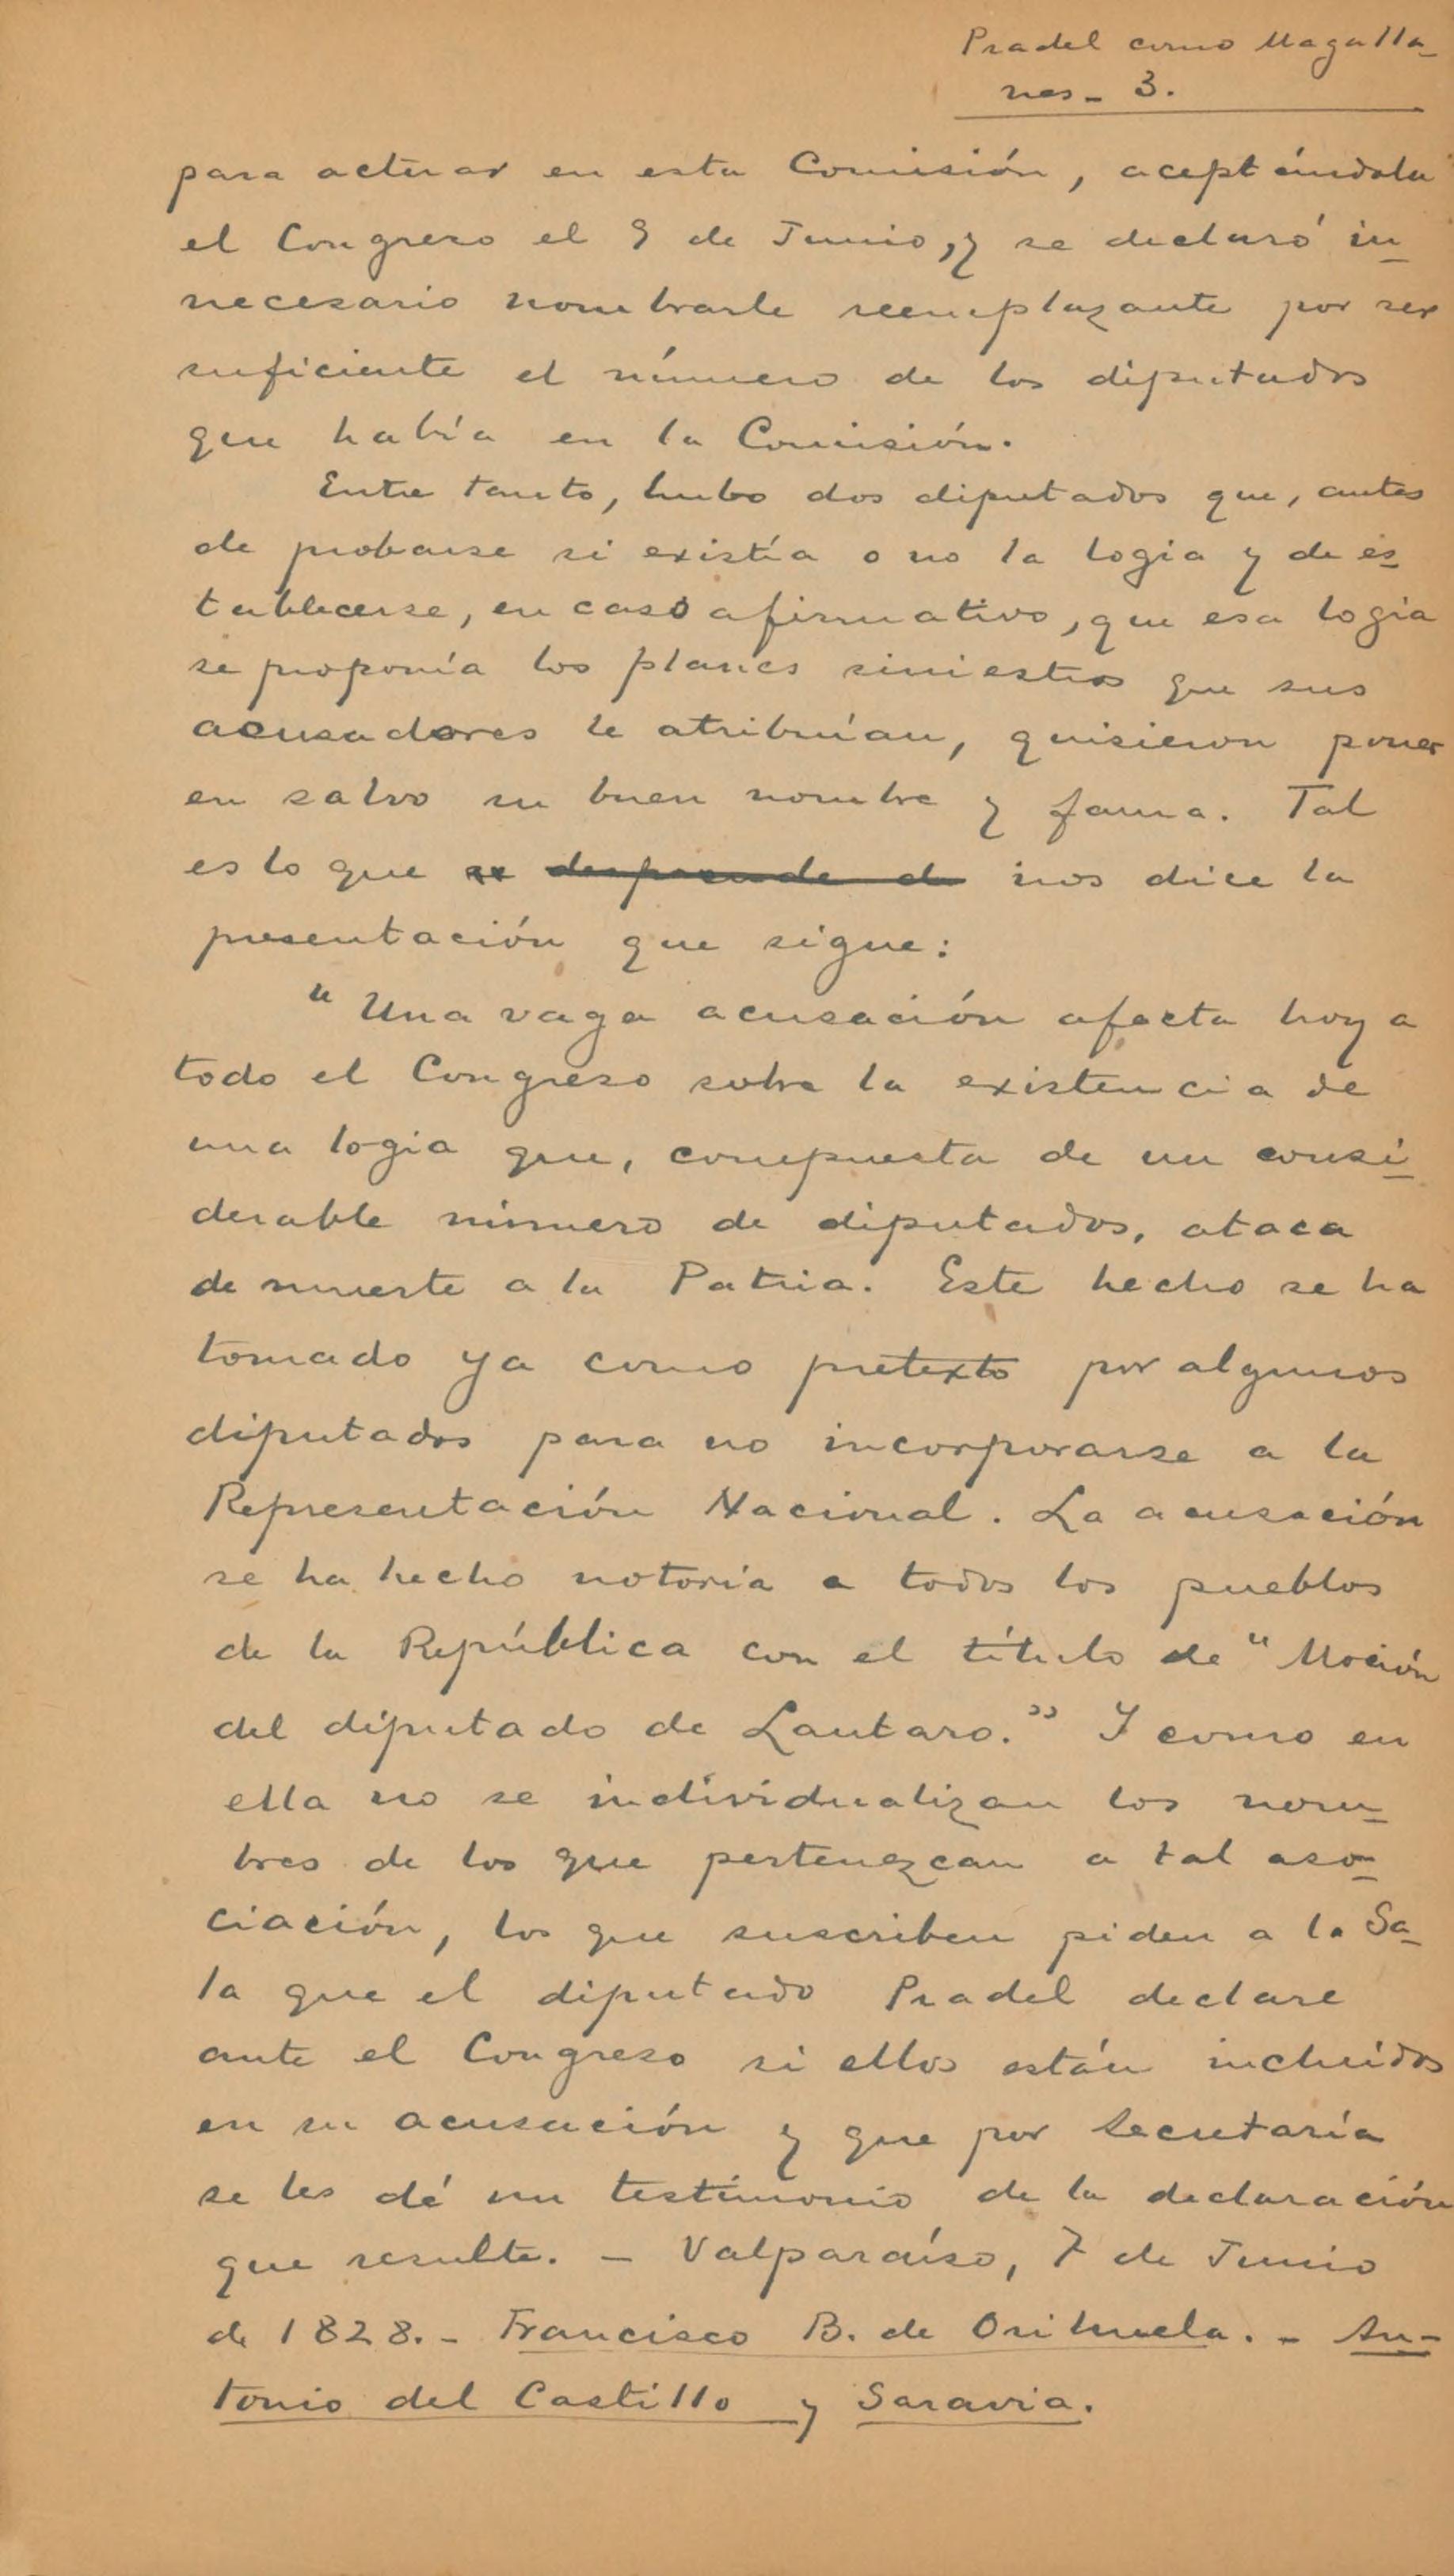 Pradel como Magalla-
nes - 3.
para actuar en esta Comisión, aceptándola
el Congreso el 9 de Junio, y se declaró in-
necesario nombrarle reemplazante por ser
suficiente el número de los diputados
que había en la Comisión.
Entre tanto, hubo dos diputados que, antes
de probarse si existía o no la logia y de es-
tablecerse, en caso afirmativo, que esa logia
se proponía los planes siniestros que sus
acusadores le atribuían, quisieron poner
en salvo su buen nombre y fama. Tal
es lo que se desprende de nos dice la
presentación que sigue:
"Una vaga acusación afecta hoy a
todo el Congreso sobre la existencia de
una logia que, compuesta de un consi-
derable número de diputados, ataca
de muerte a la Patria. Este hecho se ha
tomado ya como pretexto por algunos
diputados para no incorporarse a la
Representación Nacional. La acusación
se ha hecho notoria a todos los pueblos
de la República con el título de "Moción
del diputado de Lautaro." I como en
ella no se individualizan los nom-
bres de los que pertenezcan a tal aso-
ciación, los que suscriben piden a la Sa-
la que el diputado Pradel declare
ante el Congreso si ellos están incluidos
en su acusación y que por Secretaría
se les dé un testimonio de la declaración
que resulte. - Valparaíso, 7 de Junio
de 1828. - Francisco B. de Orihuela. - An-
tonio del Castillo y Saravia.